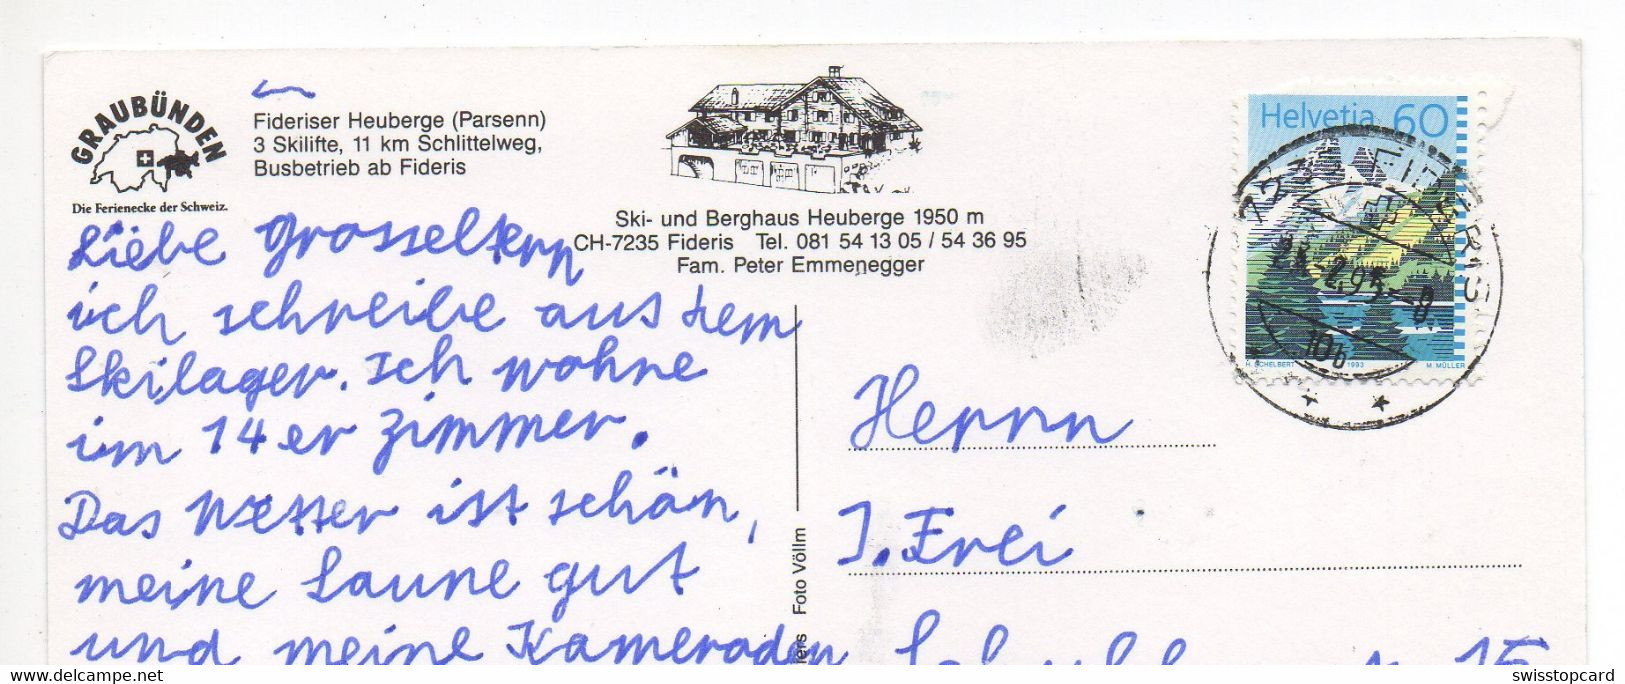 GRAUBÜNDEN
Die Ferienecke der Schweiz.
Fideriser Heuberge (Parsenn)
3 Skilifte, 11 km Schlittelweg,
Busbetrieb ab Fideris
Ski- und Berghaus Heuberge 1950 m
CH-7235 Fideris Tel. 081 54 13 05 / 54 36 95
Fam. Peter Emmenegger
Helvetia 60
H. SCHELBERT 1993 M. MÜLLER
7235 FIDERIS
-2.95-
10b
Liebe Grosseltern
ich schreibe aus dem
Skilager. Ich wohne
im 14er Zimmer.
Das Wetter ist schön,
meine Laune gut
und meine Kameraden
Foto Völlm
Herrn
J. Frei
15
swisstopcard